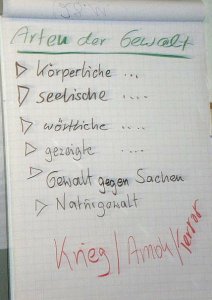 Arten der Gewalt
Körperliche ...
seelische ....
wörtliche ....
gezeigte ....
Gewalt gegen Sachen
Naturgewalt
Krieg/Amok/Terror